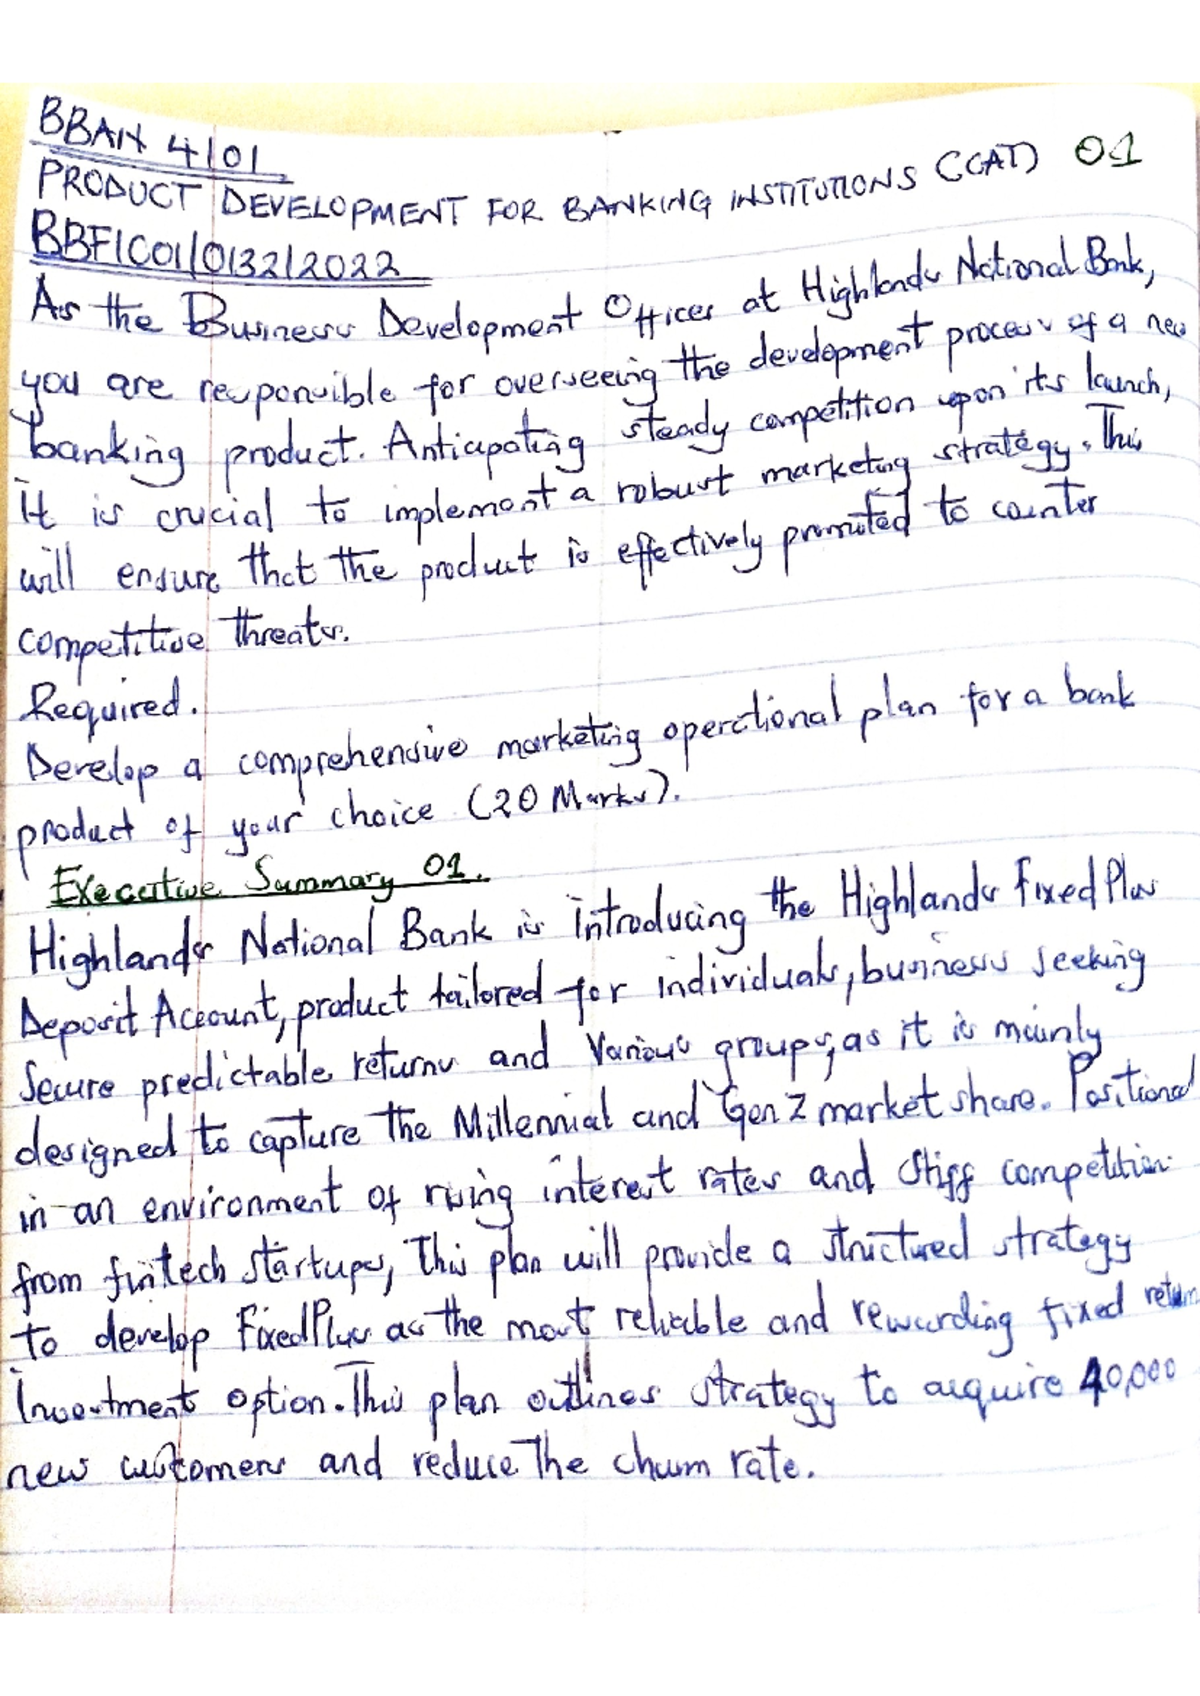 BBAN 4101
PRODUCT DEVELOPMENT FOR BANKING INSTITUTIONS (CAT) 01
BBFIC01/0132/2022
As the Business Development Officer at Highlands National Bank,
you are responsible for overseeing the development process of a new
banking product. Anticipating steady competition upon its launch,
it is crucial to implement a robust marketing strategy. This
will ensure that the product is effectively promoted to counter
competitive threats.
Required.
Develop a comprehensive marketing operational plan for a bank
product of your choice (20 Marks).
Executive Summary 01.
Highlands National Bank is introducing the Highlands FixedPlus
Deposit Account, product tailored for individuals, business seeking
secure predictable returns and various groups, as it is mainly
designed to capture the Millennial and Gen Z market share. Positioned
in an environment of rising interest rates and stiff competition
from fintech startups, This plan will provide a structured strategy
to develop FixedPlus as the most reliable and rewarding fixed return
Investment option. This plan outlines strategy to acquire 40,000
new customers and reduce The churn rate.